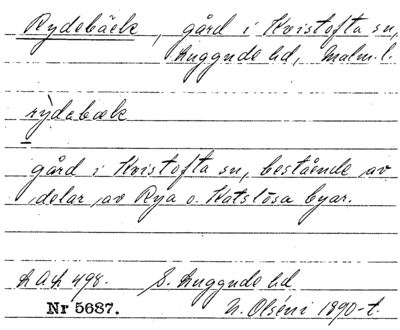 Rydebäck, gård i Kvistofta sn,
Luggude hd, Malm. l.
rỳdabæk
gård i Kvistofta sn, bestående av
delar av Rya o. Katslösa byar.
LAL 498. S. Luggude hd
Nr 5687. N. Olséni 1890-t.